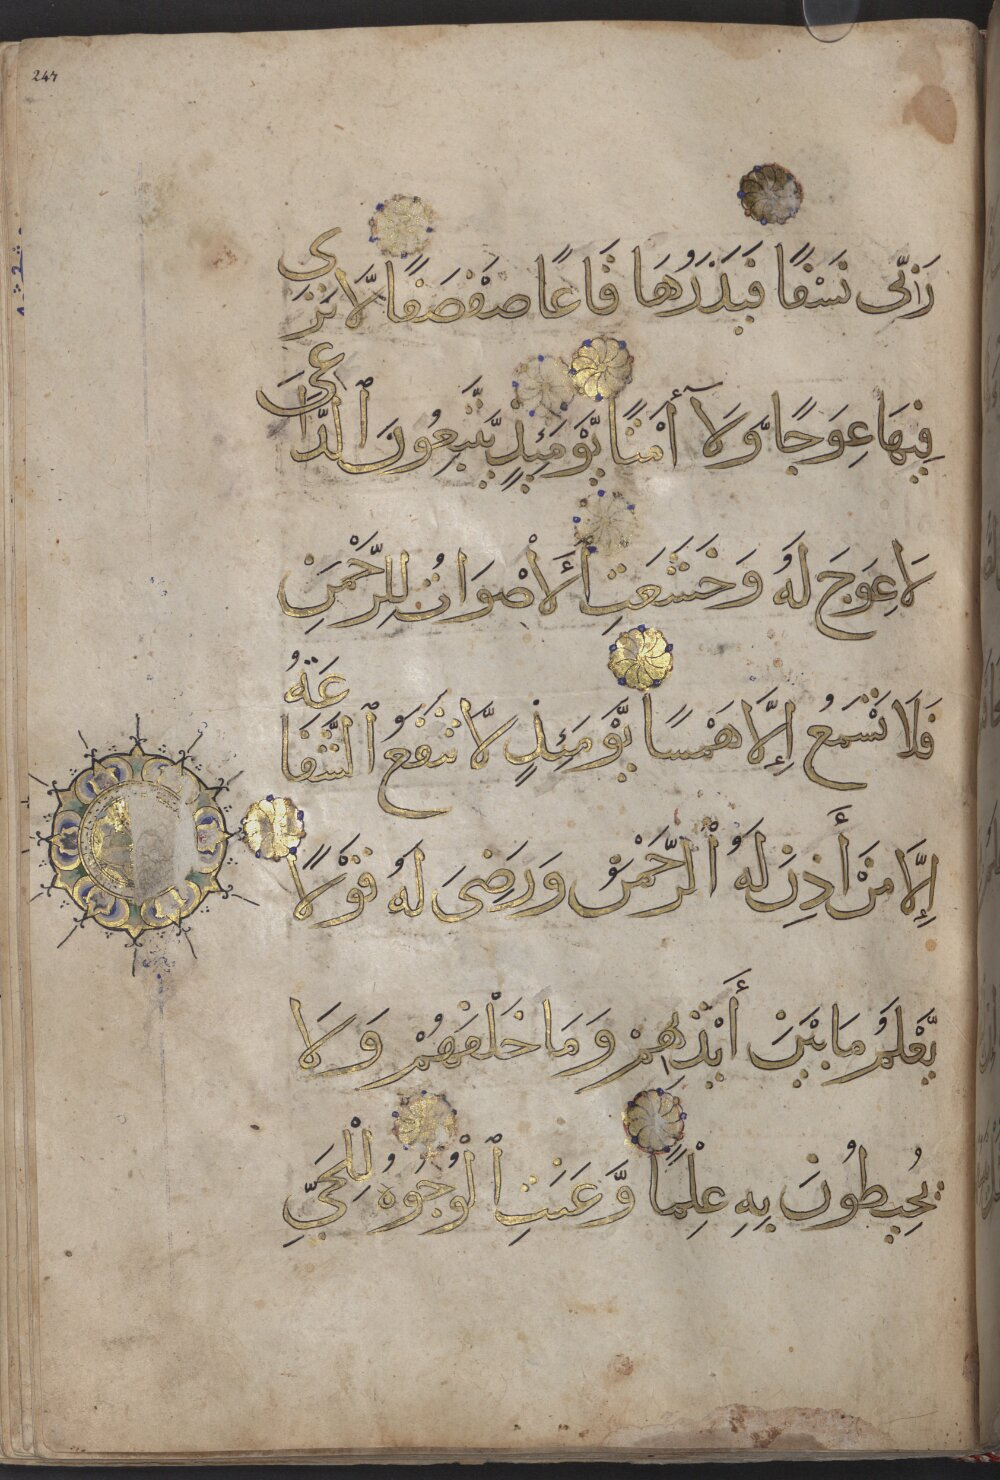 247
رَبِّى نَسْفًا فَيَذَرُهَا قَاعًا صَفْصَفًا لَّا تَرَىٰ
فِيهَا عِوَجًا وَلَآ أَمْتًا يَوْمَئِذٍ يَتَّبِعُونَ ٱلدَّاعِىَ
لَا عِوَجَ لَهُ وَخَشَعَتِ ٱلْأَصْوَاتُ لِلرَّحْمَٰنِ
فَلَا تَسْمَعُ إِلَّا هَمْسًا يَوْمَئِذٍ لَّا تَنفَعُ ٱلشَّفَاعَةُ
إِلَّا مَنْ أَذِنَ لَهُ ٱلرَّحْمَٰنُ وَرَضِىَ لَهُ قَوْلًا
يَعْلَمُ مَا بَيْنَ أَيْدِيهِمْ وَمَا خَلْفَهُمْ وَلَا
يُحِيطُونَ بِهِ عِلْمًا وَعَنَتِ ٱلْوُجُوهُ لِلْحَىِّ